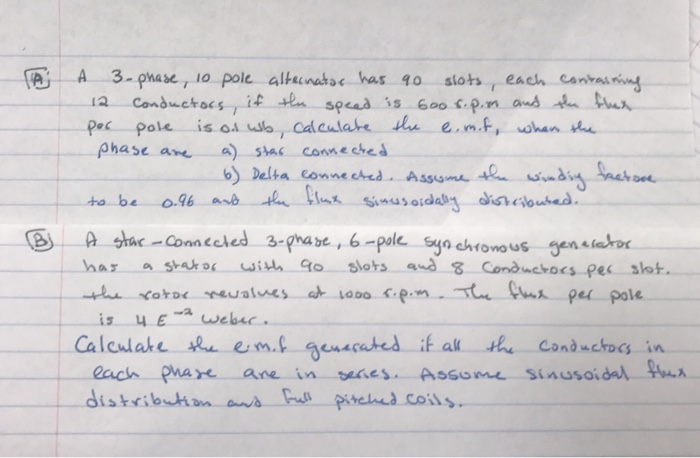 A: A 3-phase, 10 pole alternator has 90 slots, each containing
12 conductors, if the speed is 600 r.p.m and the flux
per pole is 0.1 wb, calculate the e.m.f, when the
phase are a) star connected
b) Delta connected. Assume the winding factore
to be 0.96 and the flux sinusoidally distributed.
B A star-connected 3-phase, 6-pole synchronous generator
has a stator with 90 slots and 8 conductors per slot.
the rotor revolves at 1000 r.p.m. The flux per pole
is 4 E⁻² weber.
Calculate the e.m.f generated if all the conductors in
each phase are in series. Assume sinusoidal flux
distribution and full pitched coils.